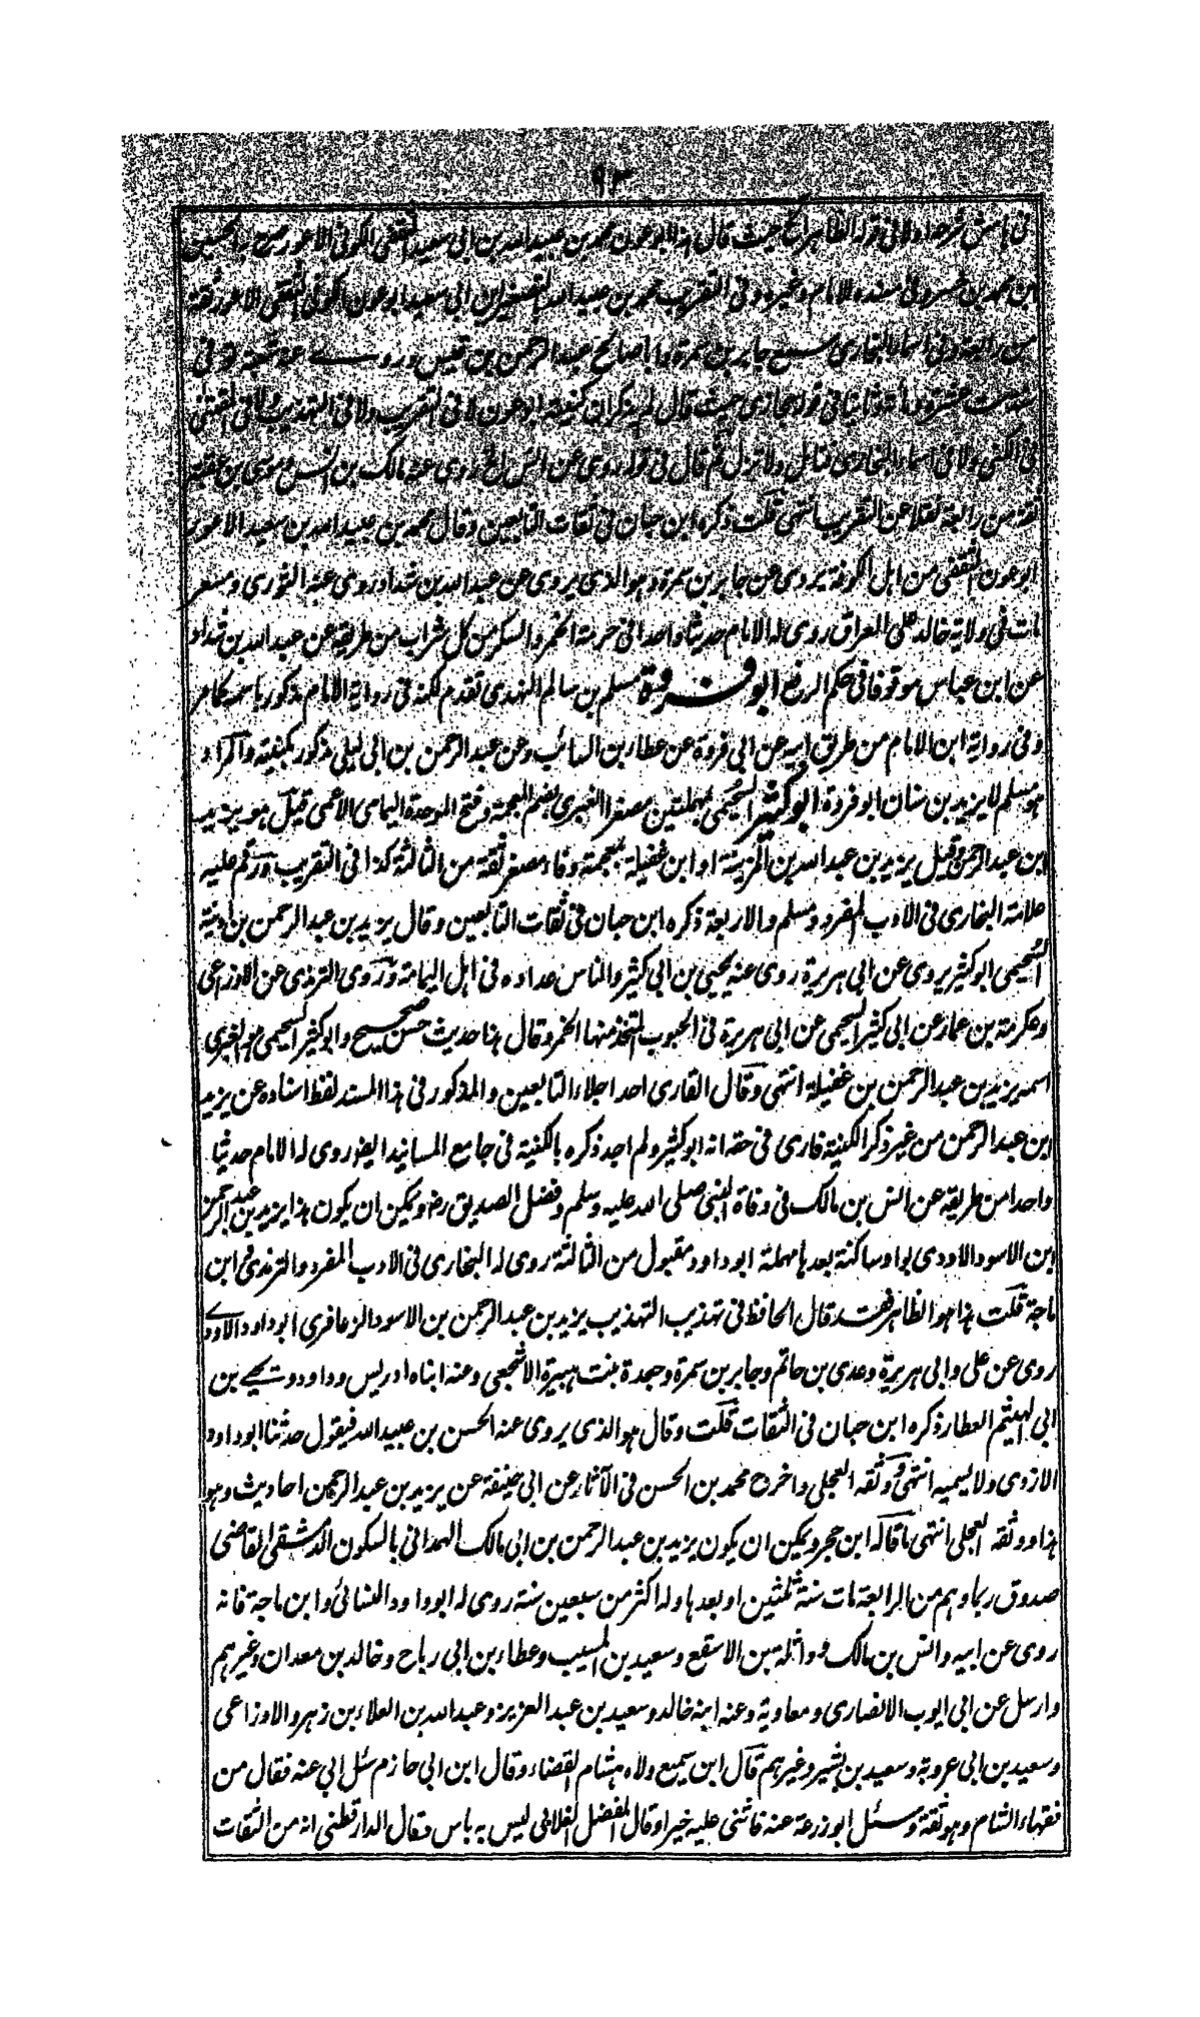 ٩٣
في هامش شرحه اولا في قوله الظاهر الخ حيث قال هذا ابو عون محمد بن عبيد الله بن ابي سعيد الثقفي الكوفي الاعور صرح به الحسين
ابن محمد بن خسرو في مسنده للامام وغيره وفي التقريب محمد بن عبيد الله بالتصغير ابن ابي سعيد ابو عون الكوفي الثقفي الاعور ثقة
من الرابعة وفي اسماء البخاري سمع جابر بن سمرة وابا صالح عبد الرحمن بن قيس وروى عنه شعبة في
سنة ست عشرة ومأة وثانيا في قوله حجازي حيث قال لم يذكر ان كنيته ابو عون لا في التقريب ولا في التهذيب ولا في المقتنى
في الكنى ولا في اسماء البخاري فتامل ولا تزل ثم قال في قوله روى عن انس الخ روى عنه مالك بن انس وموسى بن عقبة
ثقة من الرابعة نقلا عن التقريب انتهى قلت ذكره ابن حبان في ثقات التابعين وقال محمد بن عبيد الله بن سعيد الاعور
ابو عون الثقفي من اهل الكوفة يروى عن جابر بن سمرة وهو الذي يروى عن عبد الله بن شداد روى عنه الثوري ومسعر
مات في ولاية خالد على العراق روى له الامام حديثا واحدا في حرمة الخمر والسكر من كل شراب من طريقه عن عبد الله بن شداد
عن ابن عباس موقوفا في حكم الرفع ابو فروة مسلم بن سالم الهندي تقدم لكنه في رواية الامام مذكور باسمه كما مر
وفي رواية ابن الامام من طريق ابيه عن ابي فروة عن عطاء بن السائب وعن عبد الرحمن بن ابي ليلى مذكور بكنيته والمراد
هو مسلم لا يزيد بن سنان ابو فروة ابو كثير السحيمي بمهملتين مصغرا الغبري بضم المعجمة وفتح الموحدة اليمامي الاعمى قيل هو يزيد
ابن عبد الرحمن وقيل يزيد بن عبد الله بن اذينة او ابن غفيلة بمعجمة وفاء مصغر ثقة من الثالثة كذا في التقريب ورقم عليه
علامة البخاري في الادب المفرد ومسلم والاربعة ذكره ابن حبان في ثقات التابعين وقال يزيد بن عبد الرحمن بن اذينة
السحيمي ابو كثير يروى عن ابي هريرة روى عنه يحيى بن ابي كثير والناس عداده في اهل اليمامة وروى الترمذي عن الاوزاعي
وعكرمة بن عمار عن ابي كثير السحيمي عن ابي هريرة في الحبوب المتخذ منها الخمر وقال هذا حديث حسن صحيح وابو كثير السحيمي هو الغبري
اسمه يزيد بن عبد الرحمن بن غفيلة انتهى وقال القاري احد اجلاء التابعين والمذكور في هذا المسند لفظ اسناده عن يزيد
ابن عبد الرحمن من غير ذكر الكنية قارى في حقه انه ابو كثير ولم اجد ذكره بالكنية في جامع المسانيد ايضا روى له الامام حديثا
واحدا من طريقه عن انس بن مالك في وفاة النبي صلى الله عليه وسلم وفضل الصديق رض ويمكن ان يكون هذا يزيد بن عبد الرحمن
ابن الاسود الاودي بواو ساكنة بعدها مهملة ابو داود مقبول من الثالثة روى له البخاري في الادب المفرد والترمذي وابن
ماجة قلت هذا هو الظاهر فقد قال الحافظ في تهذيب التهذيب يزيد بن عبد الرحمن بن الاسود الزعافري ابو داود الاودي
روى عن علي وابي هريرة وعدي بن حاتم وجابر بن سمرة وجعدة بنت هبيرة الاشجعي وعنه ابناه ادريس وداود ويحيى بن
ابي الهيثم العطار ذكره ابن حبان في الثقات قلت وقال هو الذي يروى عنه الحسن بن عبيد الله فيقول حدثنا ابو داود
الازدي ولا يسميه انتهى ووثقه العجلي واخرج محمد بن الحسن في الآثار عن ابي حنيفة عن يزيد بن عبد الرحمن احاديث وهو
هذا ووثقه العجلي انتهى ما قاله ابن حجر ويمكن ان يكون يزيد بن عبد الرحمن بن ابي مالك الهمداني بالسكون الدمشقي القاضي
صدوق ربما وهم من الرابعة مات سنة ثلثين او بعدها وله اكثر من سبعين سنة روى له ابو داود والنسائي وابن ماجة فانه
روى عن ابيه وانس بن مالك وواثلة بن الاسقع وسعيد بن المسيب وعطاء بن ابي رباح وخالد بن معدان وغيرهم
وارسل عن ابي ايوب الانصاري ومعاوية وعنه ابنه خالد وسعيد بن عبد العزيز وعبد الله بن العلاء بن زهر والاوزاعي
وسعيد بن ابي عروبة وسعيد بن بشير وغيرهم قال ابن سميع ولاه هشام القضاء وقال ابن ابي حازم سئل ابي عنه فقال من
فقهاء الشام وهو ثقة وسئل ابو زرعة عنه فاثنى عليه خيرا وقال المفضل الغلابي ليس به باس وقال الدارقطني انه من الثقات